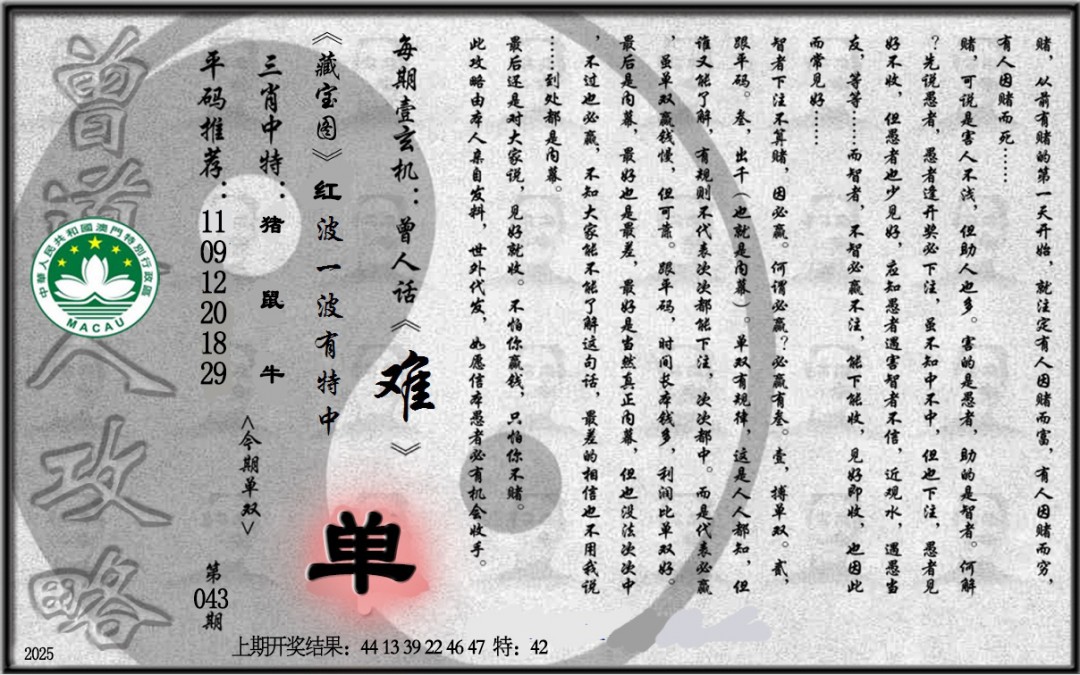 赌，从前有赌的第一天开始，就注定有人因赌而富，有人因赌而穷，
有人因赌而死……
赌，可说是害人不浅，但助人也多。害的是愚者，助的是智者。何解
？先说愚者，愚者逢开奖必下注，虽不知中不中，但也下注，愚者见
好不收，但愚者也少见好，应知愚者遇害智者不信，近观水，遇愚当
友，等等……而智者，不智必赢不注，能下能收，见好即收，也因此
而常见好……
智者下注不算赌，因必赢。何谓必赢？必赢有叁。壹，搏单双。贰，
跟平码。叁，出千（也就是内幕）。单双有规律，这是人人都知，但
谁又能了解，有规则不代表次次都能下注，次次都中。而是代表必赢
，虽单双赢钱慢，但可靠。跟平码，时间长本钱多，利润比单双好。
最后是内幕，最好也是最差，最好是当然真正内幕，但也没法次次中
，不过也必赢，不知大家能不能了解这句话，最差的相信也不用我说
……到处都是内幕。
最后还是对大家说，见好就收。不怕你赢钱，只怕你不赌。
此攻略由本人亲自发料，世外代发，如愿信本愚者必有机会收手。
每期壹玄机：曾人话《难》
《藏宝图》红波一波有特中
单
三肖中特：猪鼠牛
<今期单双>
平码推荐：11 09 12 20 18 29
第043期
曾道人攻略
中華人民共和國澳門特別行政區
MACAU
2025
上期开奖结果：44 13 39 22 46 47 特：42